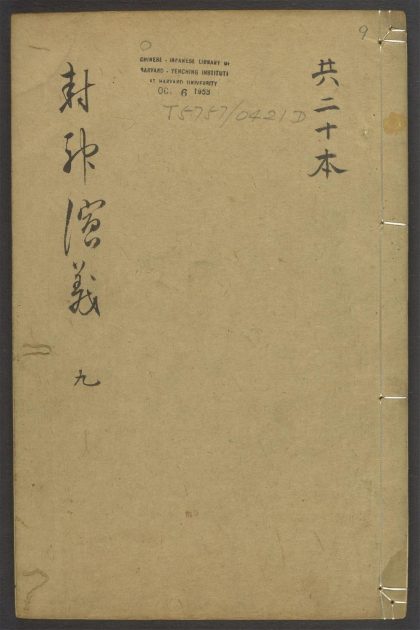 共二十本
封神演義 九
CHINESE - JAPANESE LIBRARY OF
HARVARD - YENCHING INSTITUTE
AT HARVARD UNIVERSITY
OC. 6 1953
T5757/0421D
9